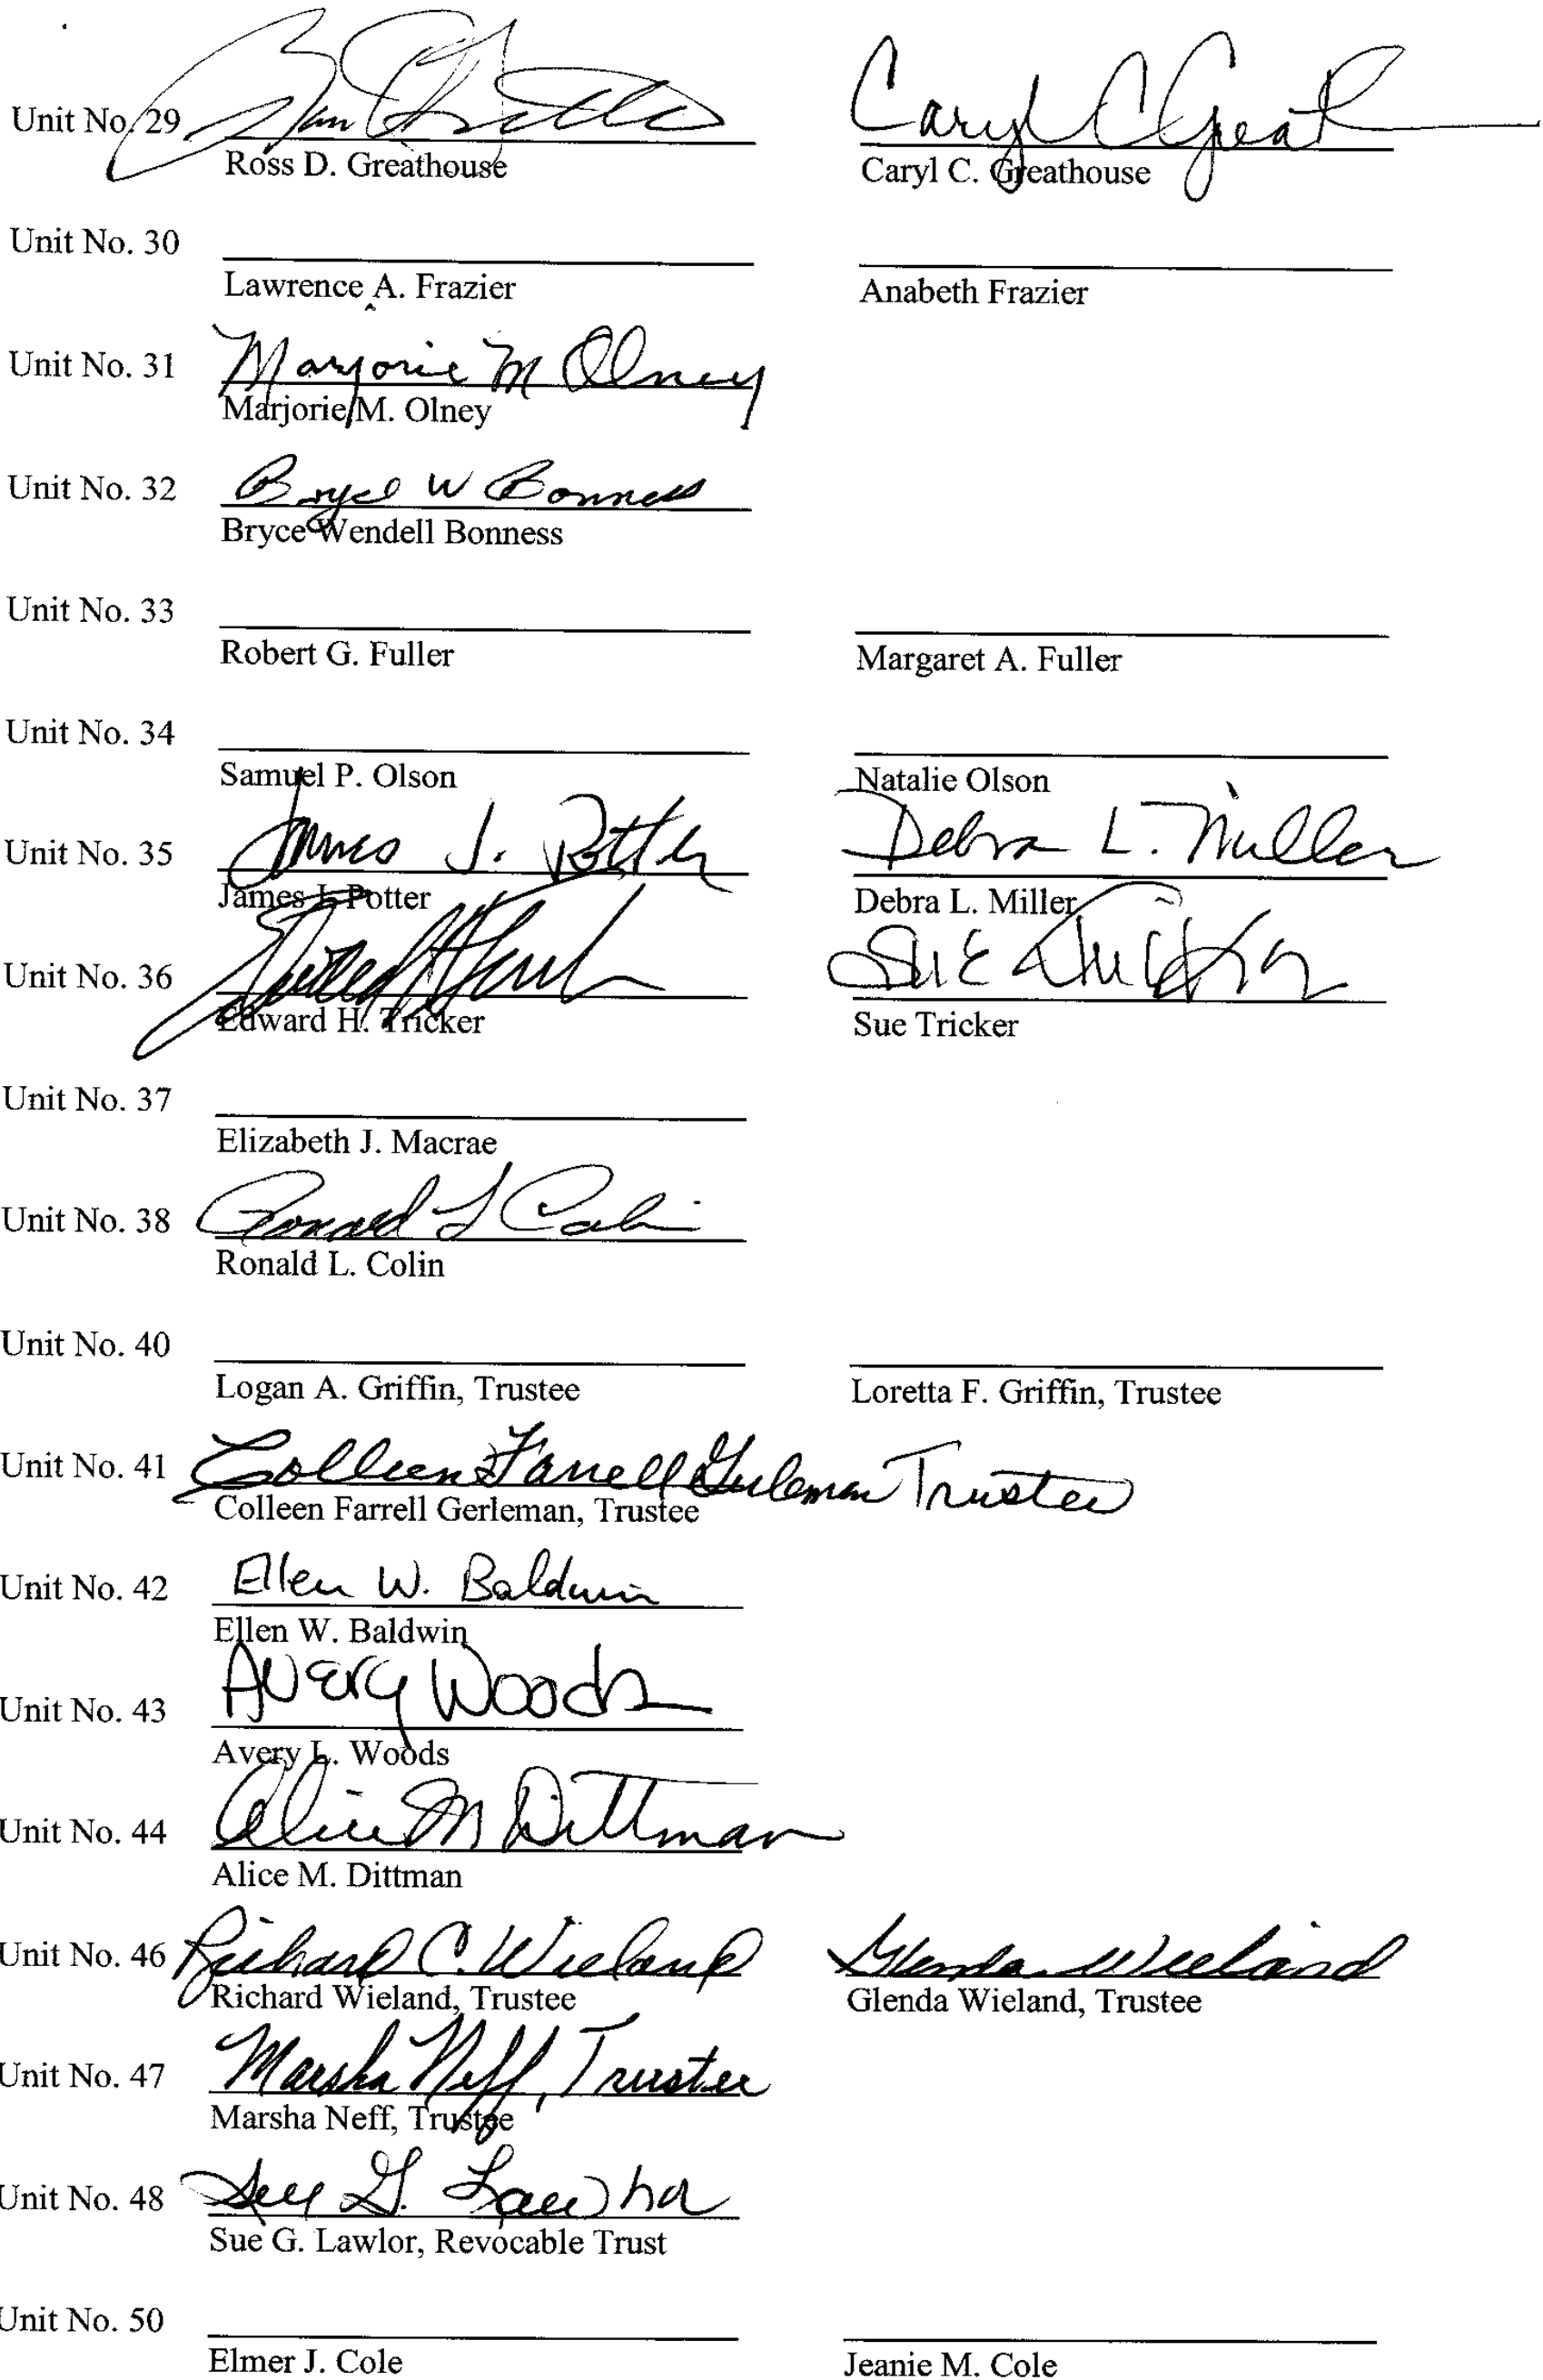 Unit No. 29 Caryl C Great
Ross D. Greathouse Caryl C. Greathouse
Unit No. 30
Lawrence A. Frazier Anabeth Frazier
Unit No. 31 Marjorie M Olney
Marjorie M. Olney
Unit No. 32 Bryce W Bonness
Bryce Wendell Bonness
Unit No. 33
Robert G. Fuller Margaret A. Fuller
Unit No. 34
Samuel P. Olson Natalie Olson
Unit No. 35 James J. Potter Debra L. Miller
James J. Potter Debra L. Miller
Unit No. 36 Sue Tricker
Edward H. Tricker Sue Tricker
Unit No. 37
Elizabeth J. Macrae
Unit No. 38 Ronald L Colin
Ronald L. Colin
Unit No. 40
Logan A. Griffin, Trustee Loretta F. Griffin, Trustee
Unit No. 41 Colleen Farrell Gerleman Trustee
Colleen Farrell Gerleman, Trustee
Unit No. 42 Ellen W. Baldwin
Ellen W. Baldwin
Unit No. 43 Avery Woods
Avery L. Woods
Unit No. 44 Alice M Dittman
Alice M. Dittman
Unit No. 46 Richard C. Wieland Glenda Wieland
Richard Wieland, Trustee Glenda Wieland, Trustee
Unit No. 47 Marsha Neff, Trustee
Marsha Neff, Trustee
Unit No. 48 Sue G. Lawlor
Sue G. Lawlor, Revocable Trust
Unit No. 50
Elmer J. Cole Jeanie M. Cole